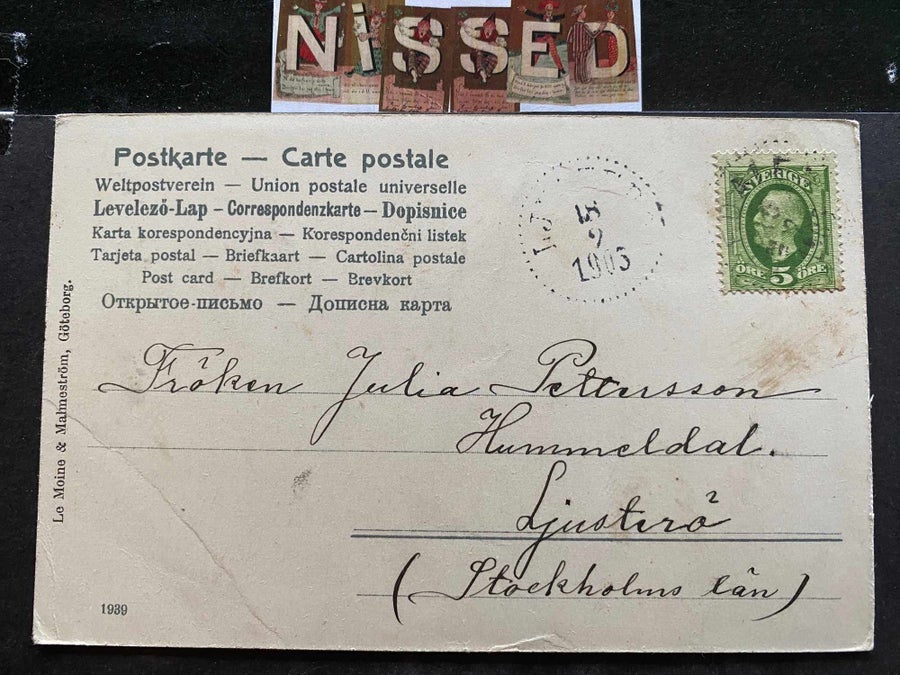 NiSSED
Postkarte — Carte postale
Weltpostverein — Union postale universelle
Levelező-Lap – Correspondenzkarte – Dopisnice
Karta korespondencyjna — Korespondenční listek
Tarjeta postal — Briefkaart — Cartolina postale
Post card — Brefkort — Brevkort
Открытое-письмо — Дописна карта
18
9
1905
SVERIGE
ÖRE 5 ÖRE
Le Moine & Malmeström, Göteborg.
Fröken Julia Pettersson
Hummeldal.
Ljusterö
(Stockholms län)
1939